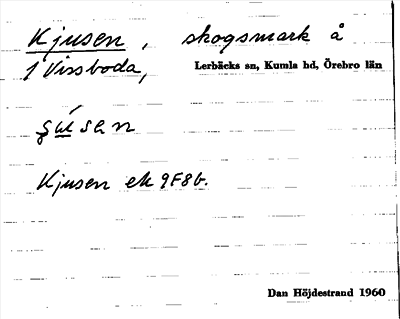 Kjusen, skogsmark å
1 Vissboda, Lerbäcks sn, Kumla hd, Örebro län
Kjusen ek 9F8b.
Dan Höjdestrand 1960